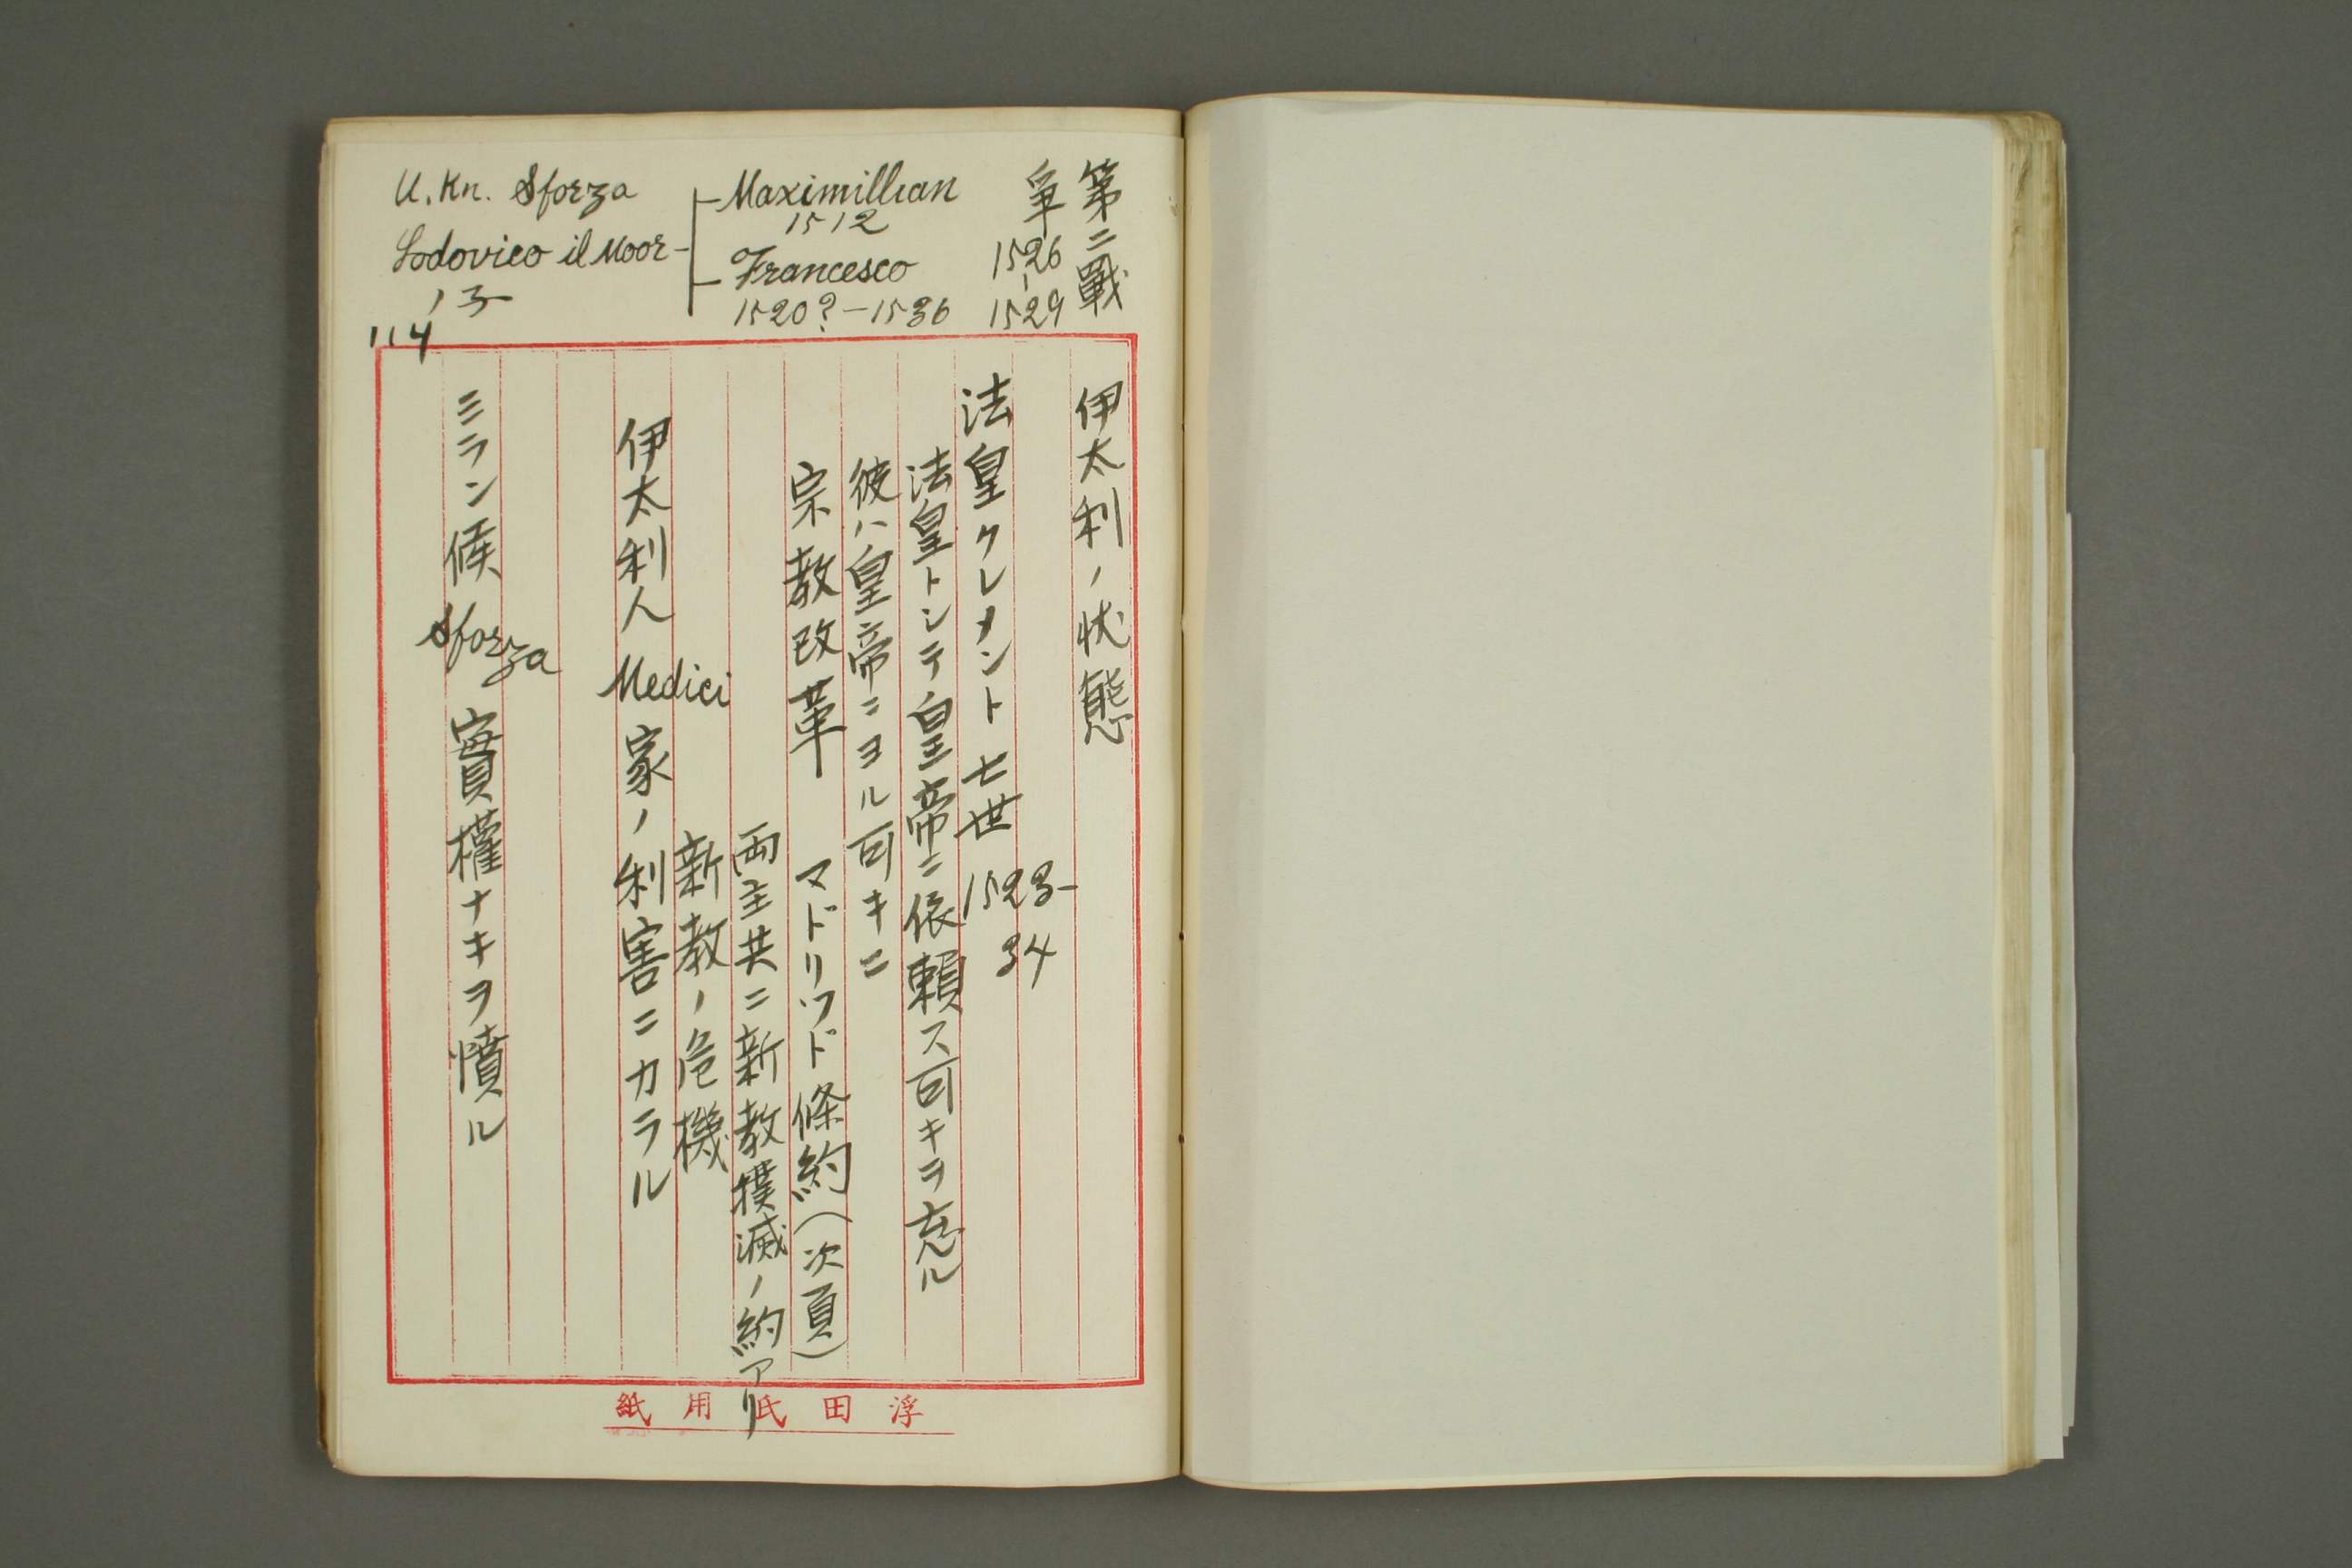 第二戰
爭
1526
-
1529
Maximillian
1512
Francesco
1520?-1536
U. Kn. Sforza
Lodovico il Moor-
ノ子
114
伊太利ノ状態
法皇クレメント七世 1523-
34
法皇トシテ皇帝ニ依頼ス可キヲ忘ル
彼ハ皇帝ニヨル可キニ
宗教改革 マドリッド條約(次頁)
両主共ニ新教撲滅ノ約アリ
新教ノ危機
伊太利人 Medici 家ノ利害ニカラル
ミラン候 Sforza 實權ナキヲ憤ル
浮田氏用紙